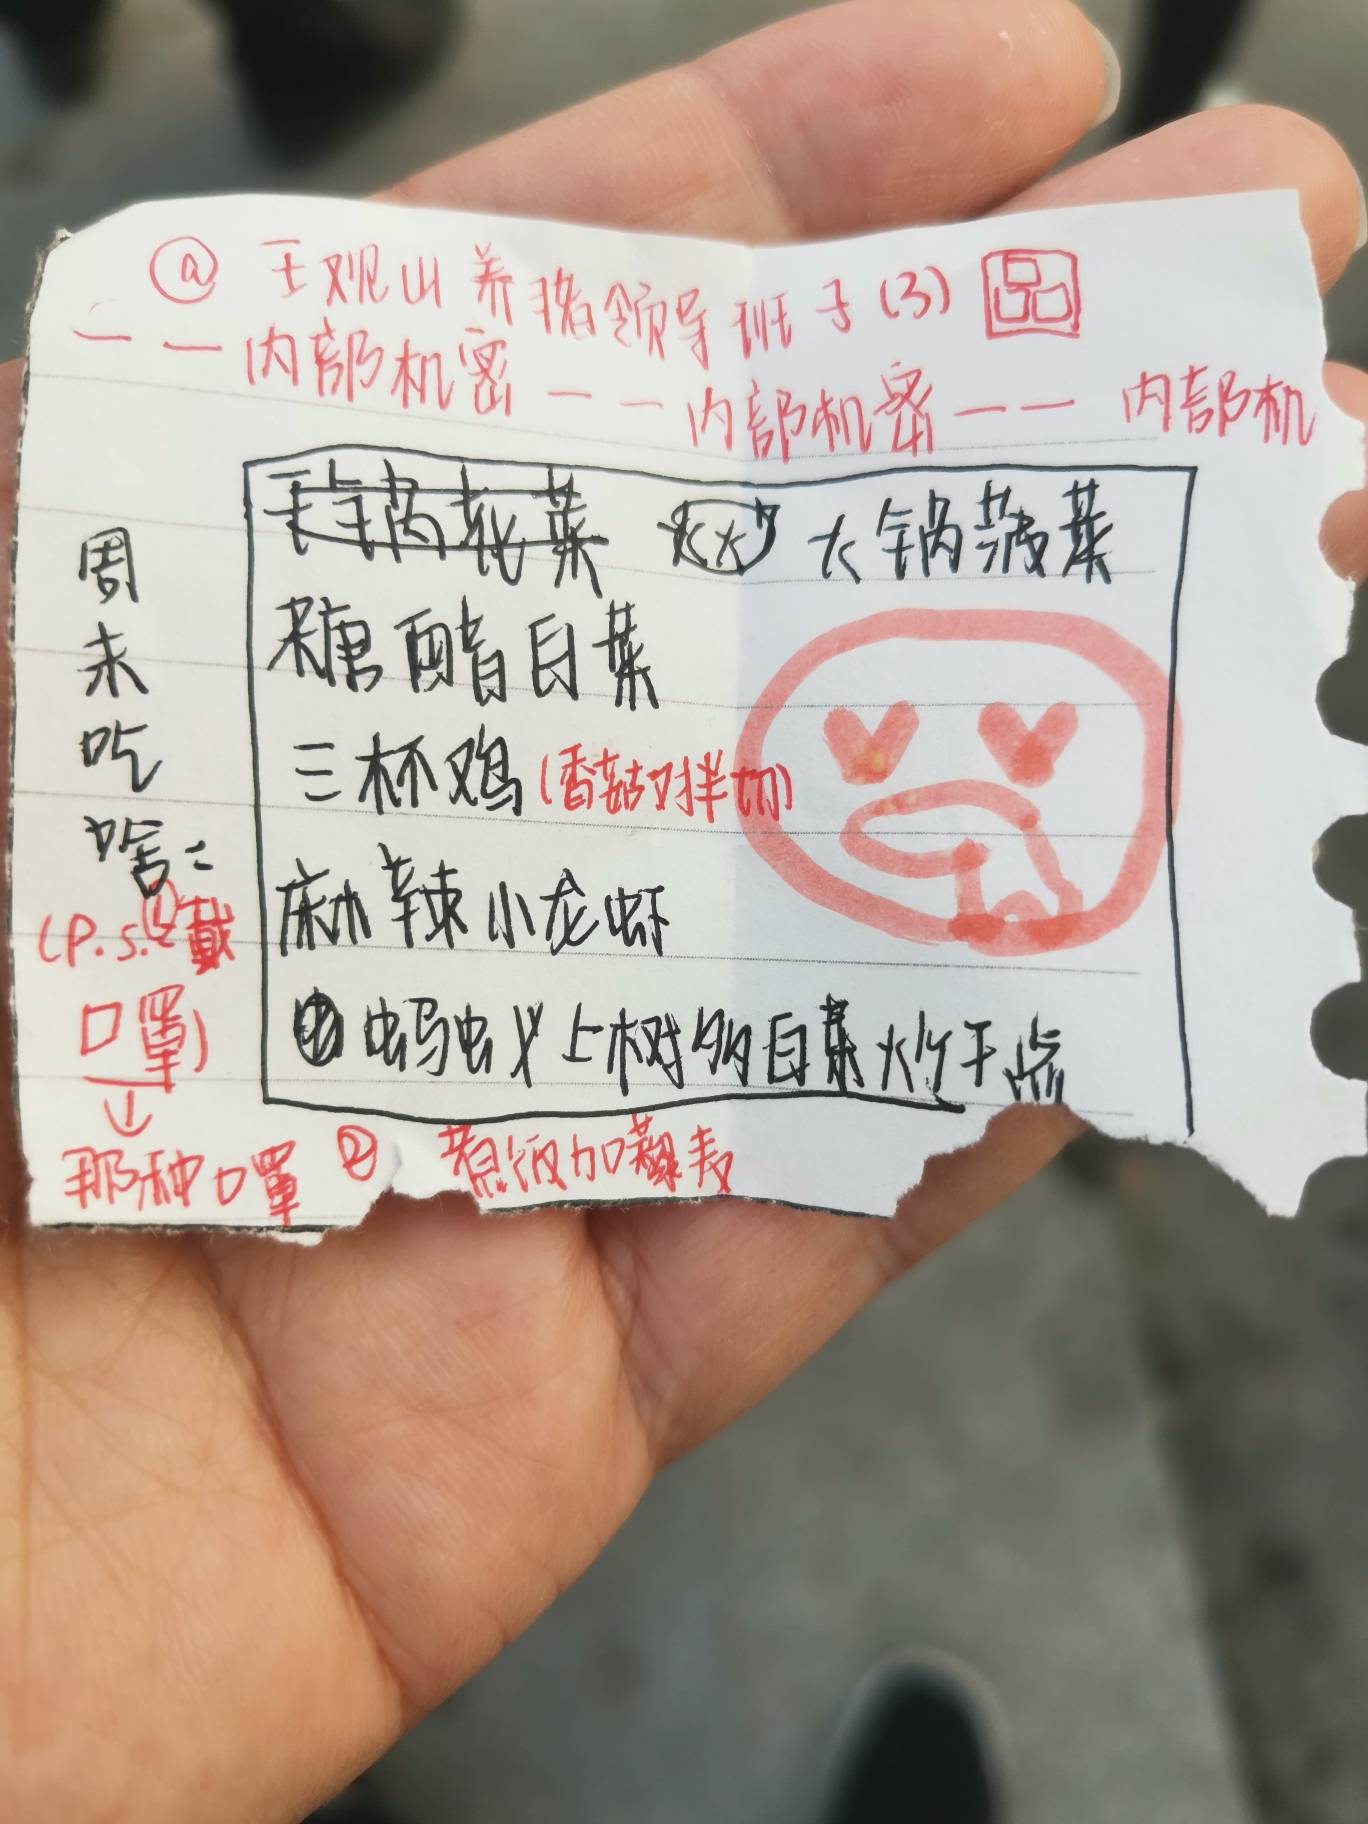 @ 王观山养猪领导班子(3)
——内部机密——内部机密——内部机
周末吃啥:
(P.s.①戴
口罩)
↓
那种口罩
干锅花菜
大锅菠菜
糖醋白菜
三杯鸡(香菇对半切)
麻辣小龙虾
蚂蚁上树的白菜炒干点
② 煮饭加藜麦